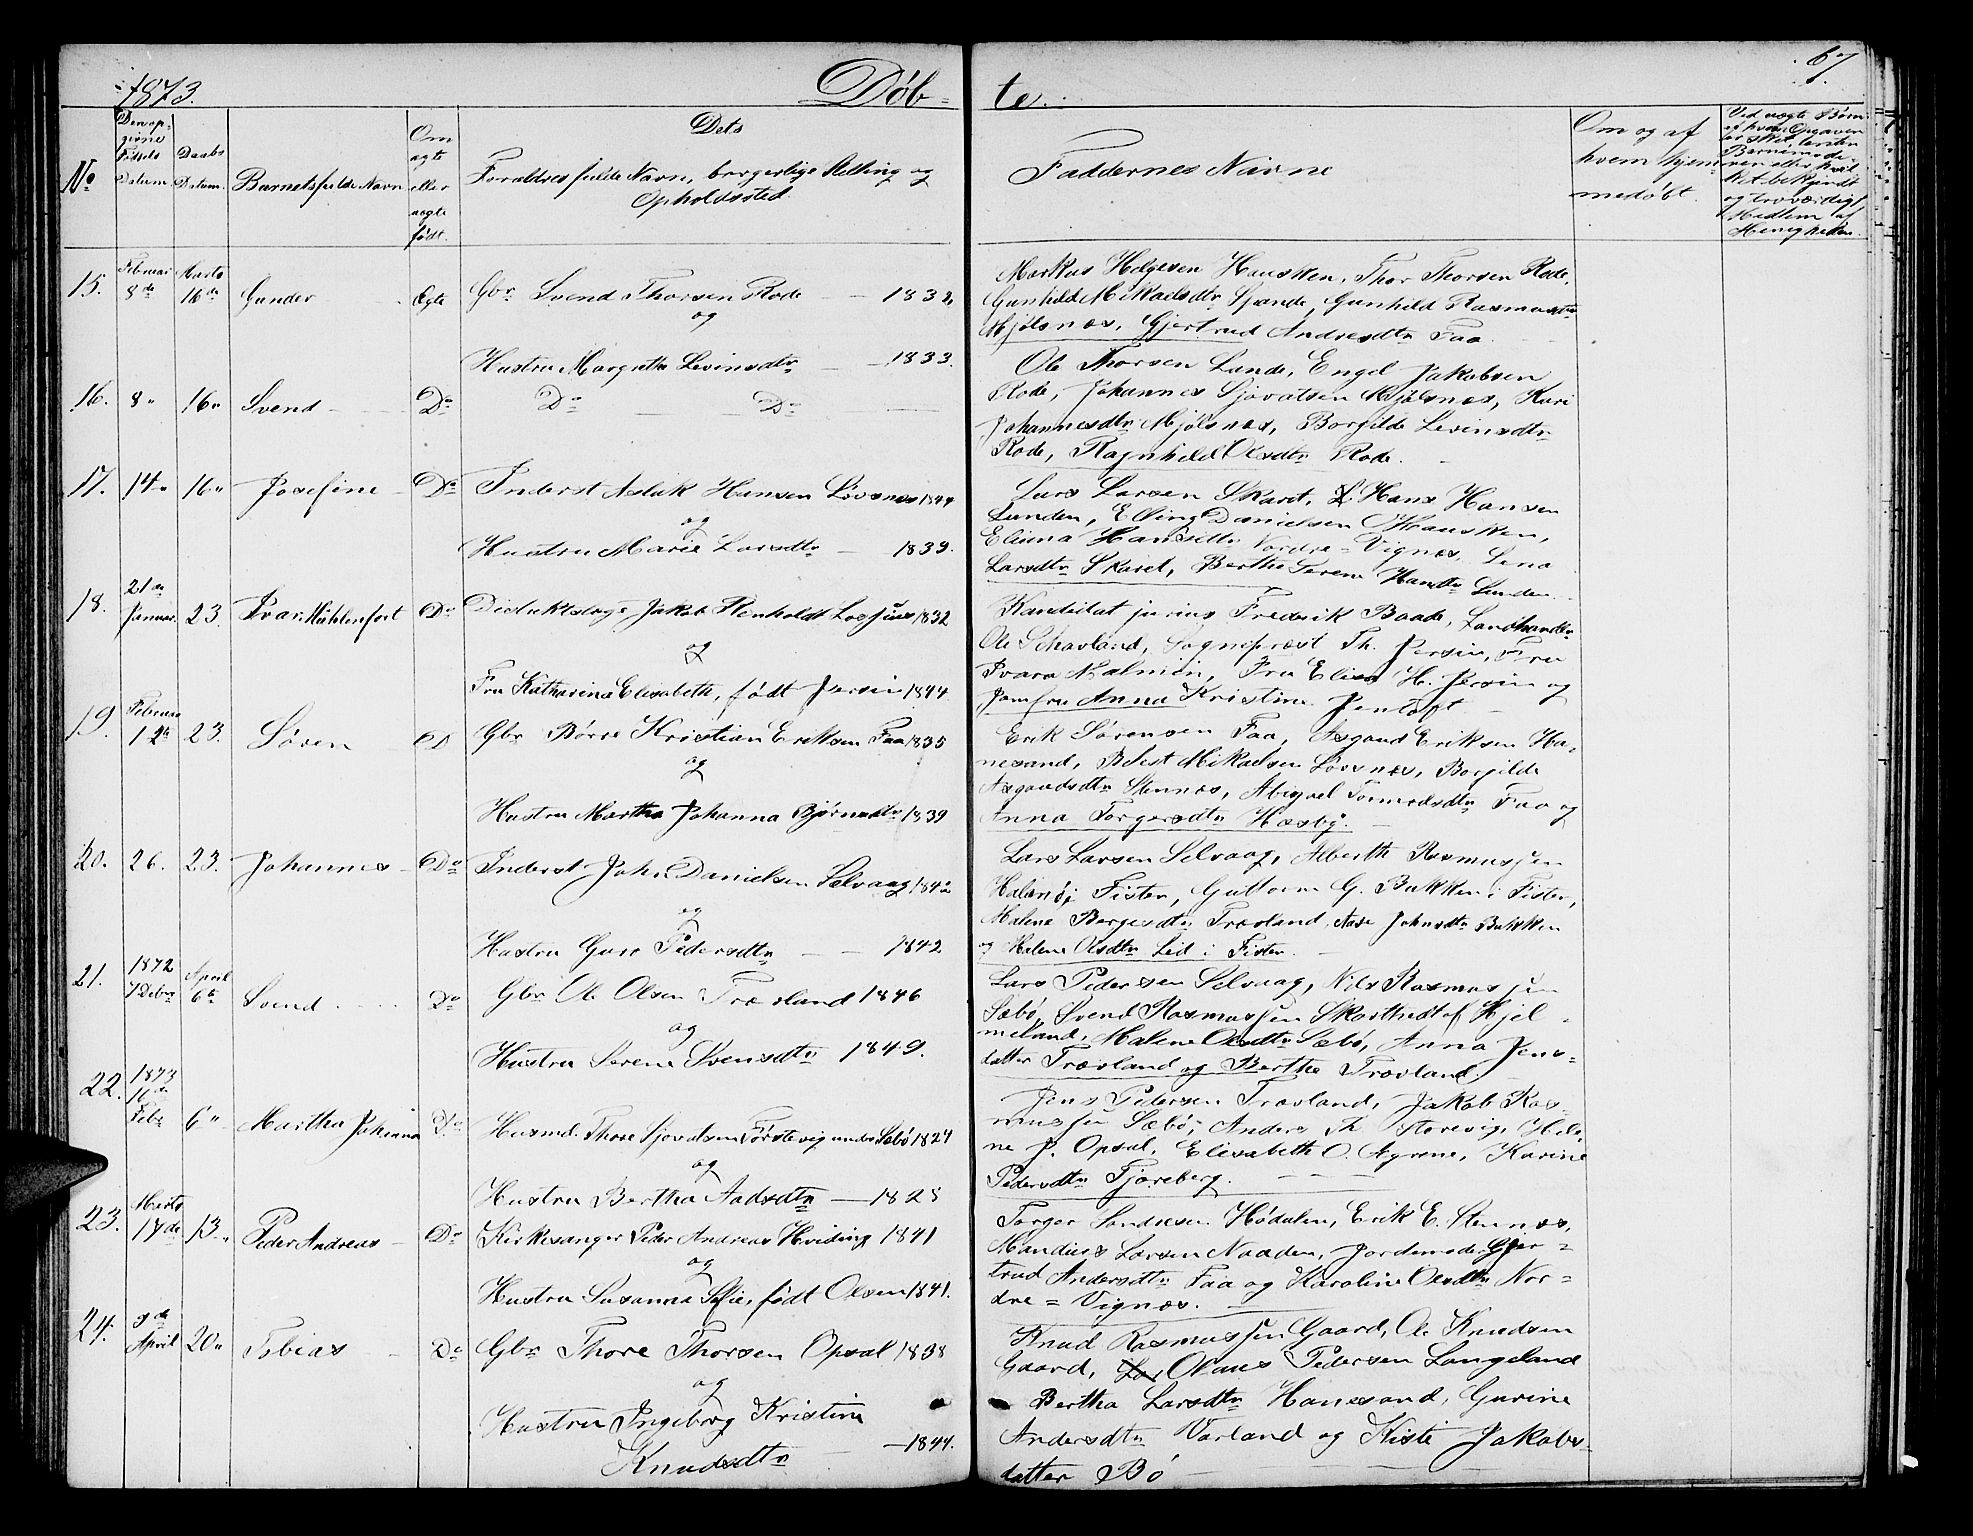 1873.
Døb-
te.
67.
No
Den op-
givne
Fødsels
Datum.
Daabs
Datum.
Barnets fulde Navn
Om
ægte
eller
uægte
født.
Dets
Forældres fulde Navn, borgerlige Stilling og
Opholdssted.
Faddernes Navne
Om og af
hvem hjem-
medøbt.
15.
Februar
8de
Marts
16de
Gunder
Ægte
Gbr Svend Thorsen Rode — 1832
og
Hustru Margrethe Levinsdtr — 1833.
Markus Helgesen Hausken, Thor Thorsen Rode,
Gunhild Mikaelsdtr Sande, Gunhild Rasmusdtr
Mjølsnæs, Gjertrud Andresdtr Faa.
16.
8"
16"
Svend
Do
Do — Do —
Ole Thorsen Lunde, Engel Jakobsen
Rode, Johannes Sjovatsen Mjølsnæs, Kari
Johannesdtr Mjølsnæs, Borgilde Levinsdtr
Rode, Ragnhild Olsdtr Rode.
17.
14"
16"
Josefine
Do
Inderst Aslak Hansen Løvsnæs 1844
og
Hustru Marie Larsdtr — 1839.
Lars Larsen Skaret, Hans Hansen
Lunden, Elling Danielsen Hausken,
Elima Hansdtr Nordre-Vignæs, Lena
Larsdtr Skaret, Berthe Serene Hansdtr Lunden.
18.
21de
Januar.
23.
Ivar Mühlenfort
Do
Distriktslæge Jakob Henholdt Lossius 1832
og
Fru Katharina Elisabeth, født Jersin 1844
Kandidat juris Frederik Baade, Landhandler
Ole Schavland, Sogneprest Th. Jersin, Fru
Ivara Malmin, Fru Elisa H. Jersin og
Jomfru Anna Kristine
19.
Februar
12te
23.
Søren
Do
Gbr Børre Kristian Eriksen Faa 1835
og
Hustru Martha Johanna Bjørnsdtr 1839
Erik Sørensen Faa, Asgaud Eriksen Ha-
nesand, Mikaelsen Løvsnæs, Borgilde
Asgaudsdtr Stennæs, Abigael Tormodsdtr Faa og
Anna Torgersdtr Hæsby.
20.
26.
23.
Johannes
Do
Inderst John Danielsen Selvaag 1842
og
Hustru Guro Pedersdtr — 1842
Lars Larsen Selvaag, Alberth Rasmussen
Halenø i Fister, Guttorm G. Bakken i Fister,
Malene Børgesdtr Trævland, Aase Johnsdtr Bakken
og Malene Olsdtr Leid i Fister.
21.
1872
7 Debr
April
6te
Svend
Do
Gbr Ole Olsen Trævland 1846
og
Hustru Serene Svensdtr 1849.
Lars Pedersen Selvaag, Nils Rasmussen
Sæbø, Svend Rasmussen Skartvedt af Hjel-
meland, Malene Olsdtr Sæbø, Anna Jens-
datter Trævland og Berthe Trævland.
22.
1873
16de
Febr
6"
Martha Johanna
Do
Husmd. Thore Sjovatsen Førstevig under Sæbø 1824
og
Hustru Bertha Aadsdtr — 1828
Jens Pedersen Trævland, Jakob Ras-
mussen Sæbø, Anders Th. Storevig, Hele-
ne J. Opsal, Elisabeth O. Karine
Pedersdtr Tjøreberg.
23.
Marts
18de
13."
Peder Andreas
Do
Kirkesanger Peder Andreas Hviding 1841
og
Hustru Susanna Sofie, født Olsen 1841.
Torger Sondresen Hødalen, Erik E. Stennæs,
Mandius Larsen Naaden, Jordemoder Gjer-
trud Andersdtr Faa og Karoline Olsdtr Nor-
dre-Vignæs.
24.
9de
April
20"
Tobias
Do
Gbr Thore Thorsen Opsal 1838
og
Hustru Ingeborg Kristine
Knudsdtr —1844.
Knud Rasmussen Gaard, Ole Knudsen
Gaard, Olaus Pedersen Langeland
Bertha Larsdtr Hanesand, Gurine
Andersdtr Varland og Kiste Jakobs-
datter Bø